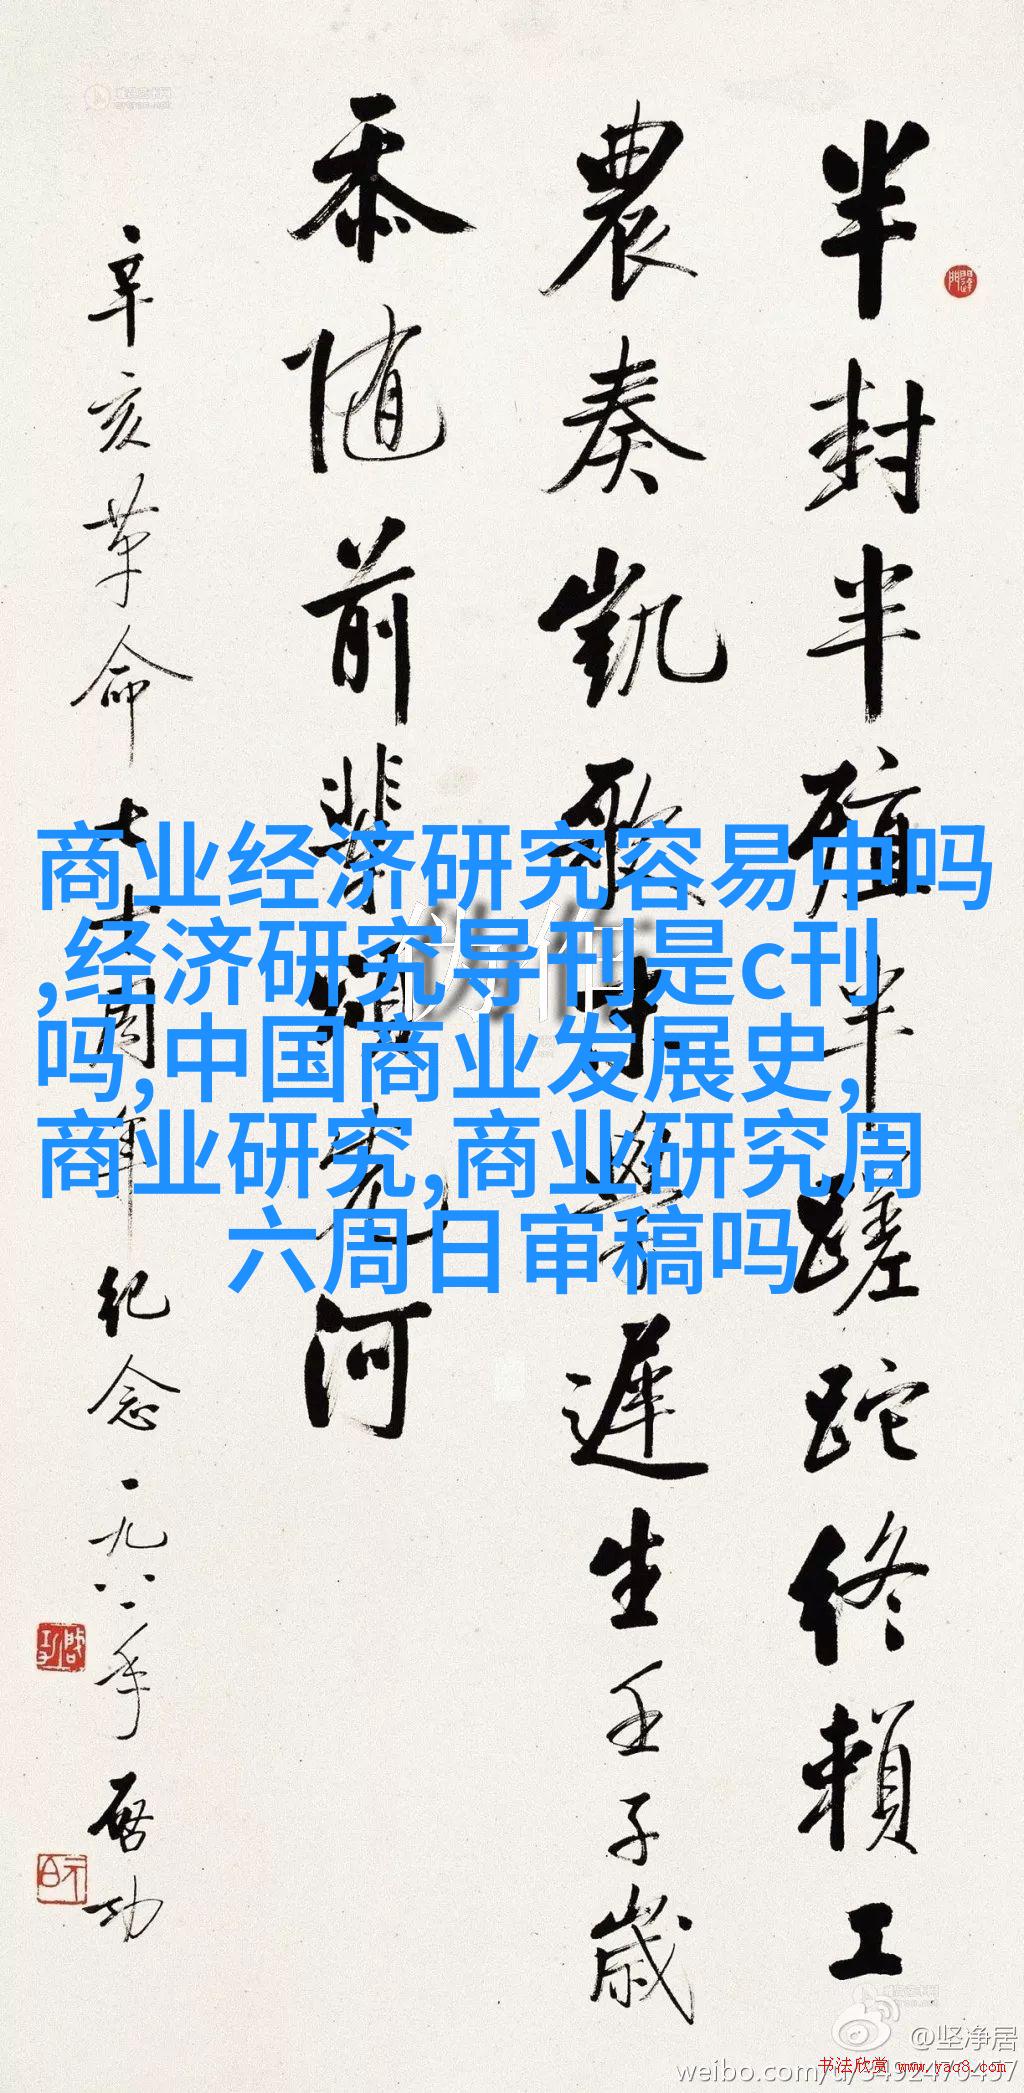 半封半殖半蹉跎终赖工
農奏凱歌
遲生壬子歳
忝随前輩
河
辛亥革命七十周年纪念一九八一年启功
商业经济研究容易中吗
,经济研究导刊是c刊
吗,中国商业发展史,
商业研究,商业研究周
六周日审稿吗
@坚净居
书法欣赏 www.yac8.com